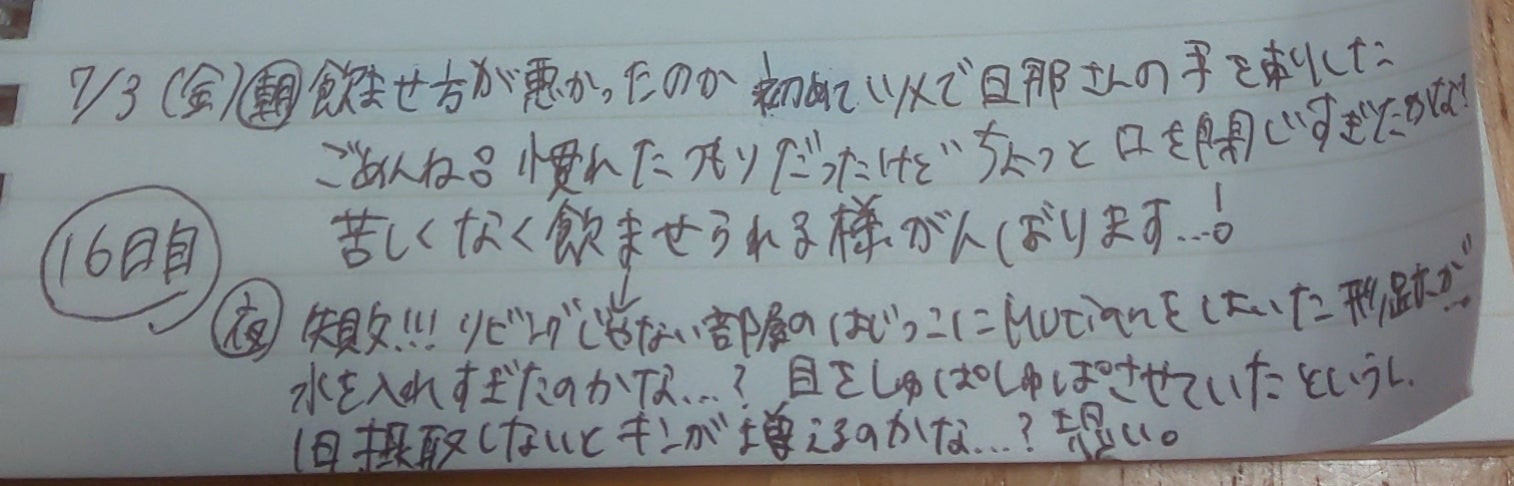 7/3(金)朝 飲ませ方が悪かったのか 初めてツメで旦那さんの手を刺した
ごめんね。慣れたつもりだったけど ちょっと口を閉じすぎたかな?
苦しくなく飲ませられる様がんばります…!
16日目
夜 失敗!!! リビングじゃない部屋のはじっこにMutianをはいた形跡が…
水を入れすぎたのかな…? 目をしゅぱしゅぱさせていたというし、
1日摂取しないとキンが増えるのかな…? 恐い。